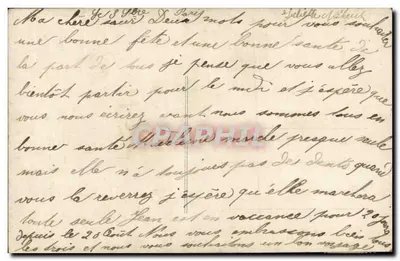 Le 8 7bre Paris
Ma chère sœur Deux mots pour vous souhaiter
une bonne fête et une bonne santé de
la part de tous je pense que vous allez
bientôt partir pour le midi et j'espère que
vous nous écrirez avant nous sommes tous en
bonne santé marche presque seule
mais elle n'a toujours pas de dents quand
vous la reverrez j'espère qu'elle marchera
toute seule Jean est en vaccance pour 20 jours
depuis le 20 Août Nous vous embrassons bien tous
les trois et nous vous souhaitons un bon voyage
CPAPHIL